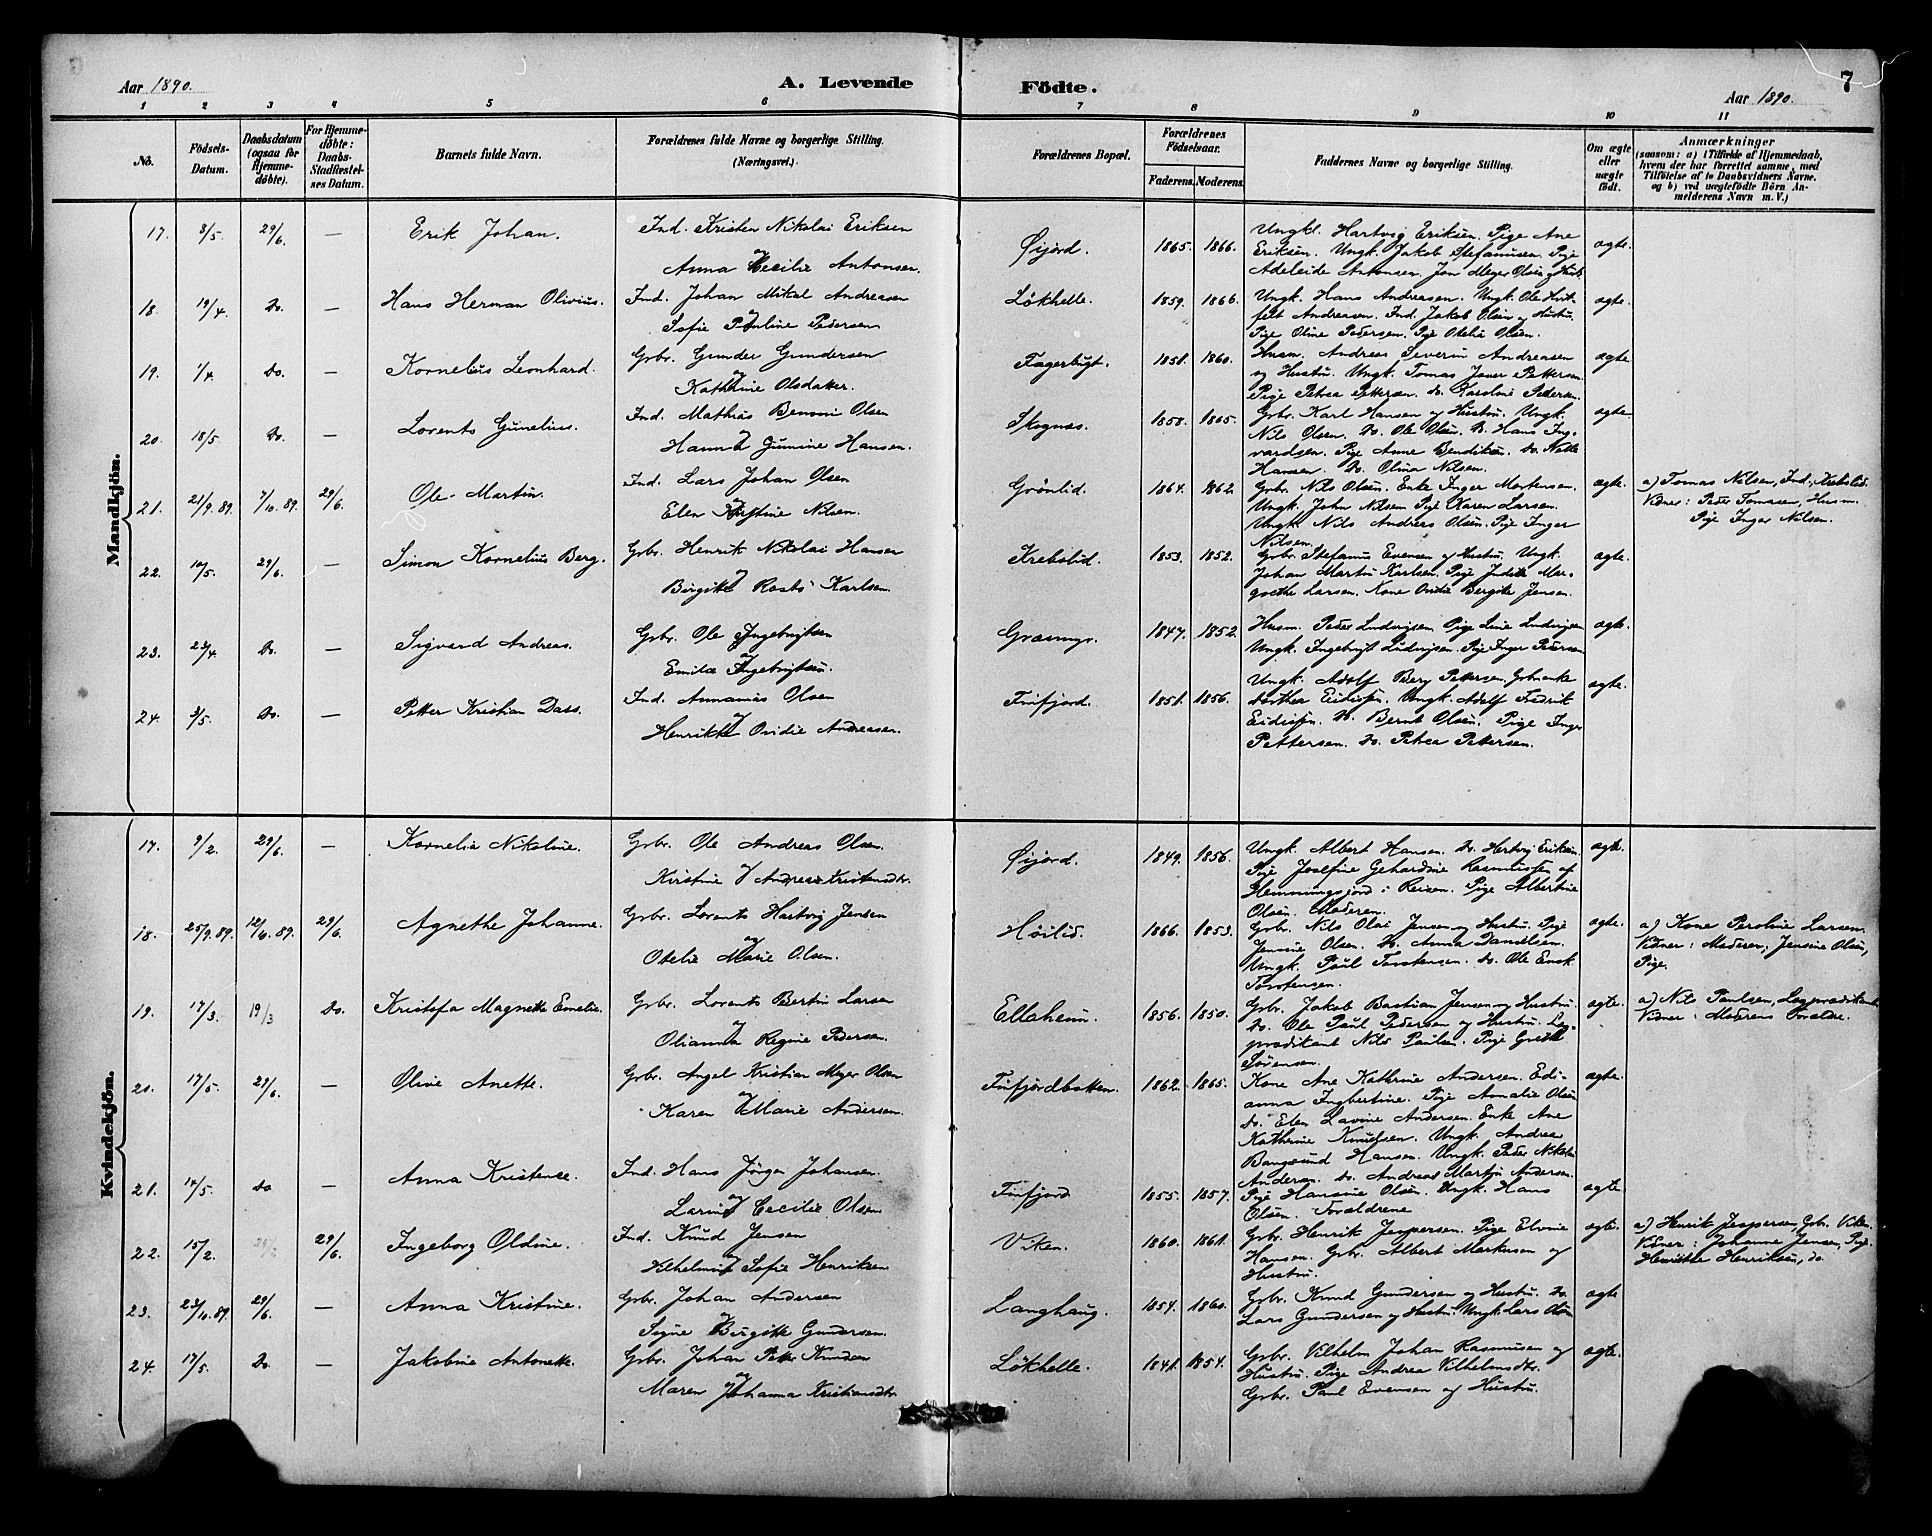 Aar 1890.
A. Levende
Födte.
7
Aar 1890.
1 2 3 4 5 6 7 8 9 10 11
No.
Födsels-
Datum.
Daabsdatum
(ogsaa for
Hjemme-
døbte).
For Hjemme-
døbte:
Daabs-
Stadfæstel-
ses Datum.
Barnets fulde Navn.
Forældrenes fulde Navne og borgerlige Stilling.
(Næringsvei.)
Forældrenes Bopæl.
Forældrenes
Födselsaar.
Faderens. Moderens.
Faddernes Navne og borgerlige Stilling.
Om ægte
eller
uægte
født.
Anmærkninger
(saasom: a) i Tilfælde af Hjemmedaab,
hvem der har forrettet samme, med
Tilföielse af to Daabsvidners Navne.
og b) ved uægtefödte Börn An-
melderens Navn m. V.)
Mandkjön.
17. 8/5. 29/6. — Erik Johan. Ind. Kristen Nikolai Eriksen
og
Anna Cecilie Antonsen. Øijord. 1865. 1866. Ungkl. Hartvig Eriksen. Pige Ane
Eriksen. Ungk. Jakob Stefanusen Pige
Adelaide Antonsen. Jon Meyer Olsen og Hust. ægte.
18. 19/4. Do. — Hans Herman Olivius. Ind. Johan Mikal Andreasen
og
Sofie Pauline Pedersen Løkhelle. 1859. 1866. Ungk. Hans Andreasen. Ungk. Ole Hvit-
felt Andreasen. Ind. Jakob Olsen og Hustru.
Pige Oline Pedersen. Pige Otelie Olsen. ægte.
19. 1/4. Do. — Kornelius Leonhard. Gbr. Gunder Gundersen
og
Kathrine Olsdatter. Fagerbugt. 1851. 1860. Husm. Andreas Severin Andreasen
og Hustru. Ungk. Tomas Pettersen.
Pige Petrea Pettersen. Do. Karoline Pedersen. ægte
20. 18/5 Do. — Lorents Gunelius. Ind. Mathias Benoni Olsen
og
Hanna Gumine Hansen. Skognæs. 1858. 1865. Gbr. Karl Hansen og Hustru. Ungk.
Nils Olsen. Do. Ole Olsen. Do. Hans Ing-
vardsen. Pige Anne Bendiksen. Do.
Hansen. Do. Olina Nilsen. ægte
21. 21/9. 89. 7/10. 89. 29/6. Ole Martin. Ind. Lars Johan Olsen
og
Elen Kristine Nilsen. Grønlid. 1864. 1862. Gbr. Nils Olsen. Enke Inger Mortensen.
Ungk. John Nilsen Pige Karen Larsen.
Ungk. Nils Andreas Olsen. Pige Inger
Nilsen. ægte. a) Tomas Nilsen, Ind., Krebslid.
Vidner: Peder Tomasen, Husm.
Pige Inger Nilsen.
22. 10/5. 29/6. — Simon Kornelius Berg. Gbr. Henrik Nikolai Hansen
og
Birgitte Karlsen. Krebslid. 1853. 1852. Gbr. Stefanus Evensen og Hustru. Ungk.
Johan Martin Karlsen. Pige Judith Mar-
grethe Larsen. Kone Ovidie Bergitte Jensen. ægte.
23. 23/4 Do. — Sigvard Andreas. Gbr. Ole Ingebrigtsen
og
Emilie Ingebrigtsen. Græsmyr. 1847. 1852. Husm. Peder Ludvigsen. Pige Ludvigsen
Ungk. Ingebrigt Ludvigsen. Pige Inger Petersen ægte.
24. 3/5. Do. — Petter Kristian Dass. Ind. Annanias Olsen
og
Henrikke Ovidie Andreasen. Finfjord. 1851. 1856. Ungk. Adolf Berg Petersen, Gbrenke
Dorthea Eidissen. Ungk. Adolf Fredrik
Eidissen. Do. Bernt Olsen. Pige Inger
Pettersen. Do. Petrea Pettersen. ægte.
Kvindekjön.
17. 9/2. 29/6. — Kornelia Nikoline. Gbr. Ole Andreas Olsen.
og
Kirstine Andrea Kristensdtr. Øijord. 1849. 1856. Ungk. Albert Hansen. Do. Hertvig Eriksen
Pige Josefine Gehardine Rasmussen af
Hemmingsjord i Reisen. Pige Albertine
Olsen. Moderen. ægte.
18. 25/9. 89. 12/ 89. 29/6. Agnethe Johanne. Gbr. Lorents Hartvig Jensen
og
Otelie Marie Olsen. Høilid. 1866. 1853. Gbr. Nils Olai Jensen og Hustru. Pige
Jensine Olsen. Do. Anna Danielsen.
Ungk. Paul Torstensen. Do. Ole Enok
Torstensen. ægte. a) Kone Peroline Larsen.
Vidner: Moderen; Jensine Olsen,
Pige.
19. 17/3. 19/3 Do. Kristofa Magnette Emelie. Gbr. Lorents Bertin Larsen
og
Olianna Regine Pedersen. Elleheim. 1856. 1850. Gbr. Jakob Bastian Jensen og Hustru.
Do. Ole Paul Pedersen og Hustru. Læg-
prædikant Nils Paulsen. Pige Grethe
Sørensen. ægte. a) Nils Paulsen, Lægprædikant
Vidner: Moderens Forældre.
20. 17/5. 29/6. — Oline Anette. Gbr. Angel Kristian Meyer Olsen
og
Karen Marie Andersen. Finfjordbotten. 1862. 1865. Kone Ane Kathrine Andersen. Edi-
anna Ingbertine. Pige Amalie Olsen
Do. Elen Lavine Andersen. Enke Ane
Kathrine Knudsen. Ungk. Andreas
Bangsund Hansen. Ungk. Peder Nikolai
Andersen. Do. Andreas Martin Andersen. ægte.
21. 14/5. Do — Anna Kristense. Ind. Hans Jørgen Johansen.
og
Larine Cecilie Olsen Finfjord 1855. 1857. Pige Hansine Olsen. Ungk. Hans
Olsen. Forældrene ægte.
22. 15/2. 29/6. Ingeborg Oldine. Ind. Knud Jensen
og
Vilhelmine Sofie Henriksen Viken. 1860. 1861. Gbr. Henrik Jespersen. Pige Elvine
Hansen. Gbr. Albert Markusen og
Hustru. ægte. a) Henrik Jespersen, Gbr. Viken.
Vidner: Johanne Jensen, Pige.
Henriette Henriksen, do.
23. 23/10. 89. 29/6. — Anna Kristine. Gbr. Johan Andersen
og
Signe Birgitte Gundersen. Langhaug. 1854. 1860. Gbr. Knud Gundersen og Hustru. Do.
Lars Gundersen og Hustru. Ungk. Lars Olsen ægte
24. 17/5. Do. — Jakobine Antonette. Gbr. Johan Peter Knudsen
og
Maren Johanna Kristiansdtr. Løkhelle. 1841. 1854. Gbr. Vilhelm Johan Rasmussen og
Hustru. Pige Andrea Vilhelmsdtr.
Gbr. Paul Evensen og Hustru. ægte.